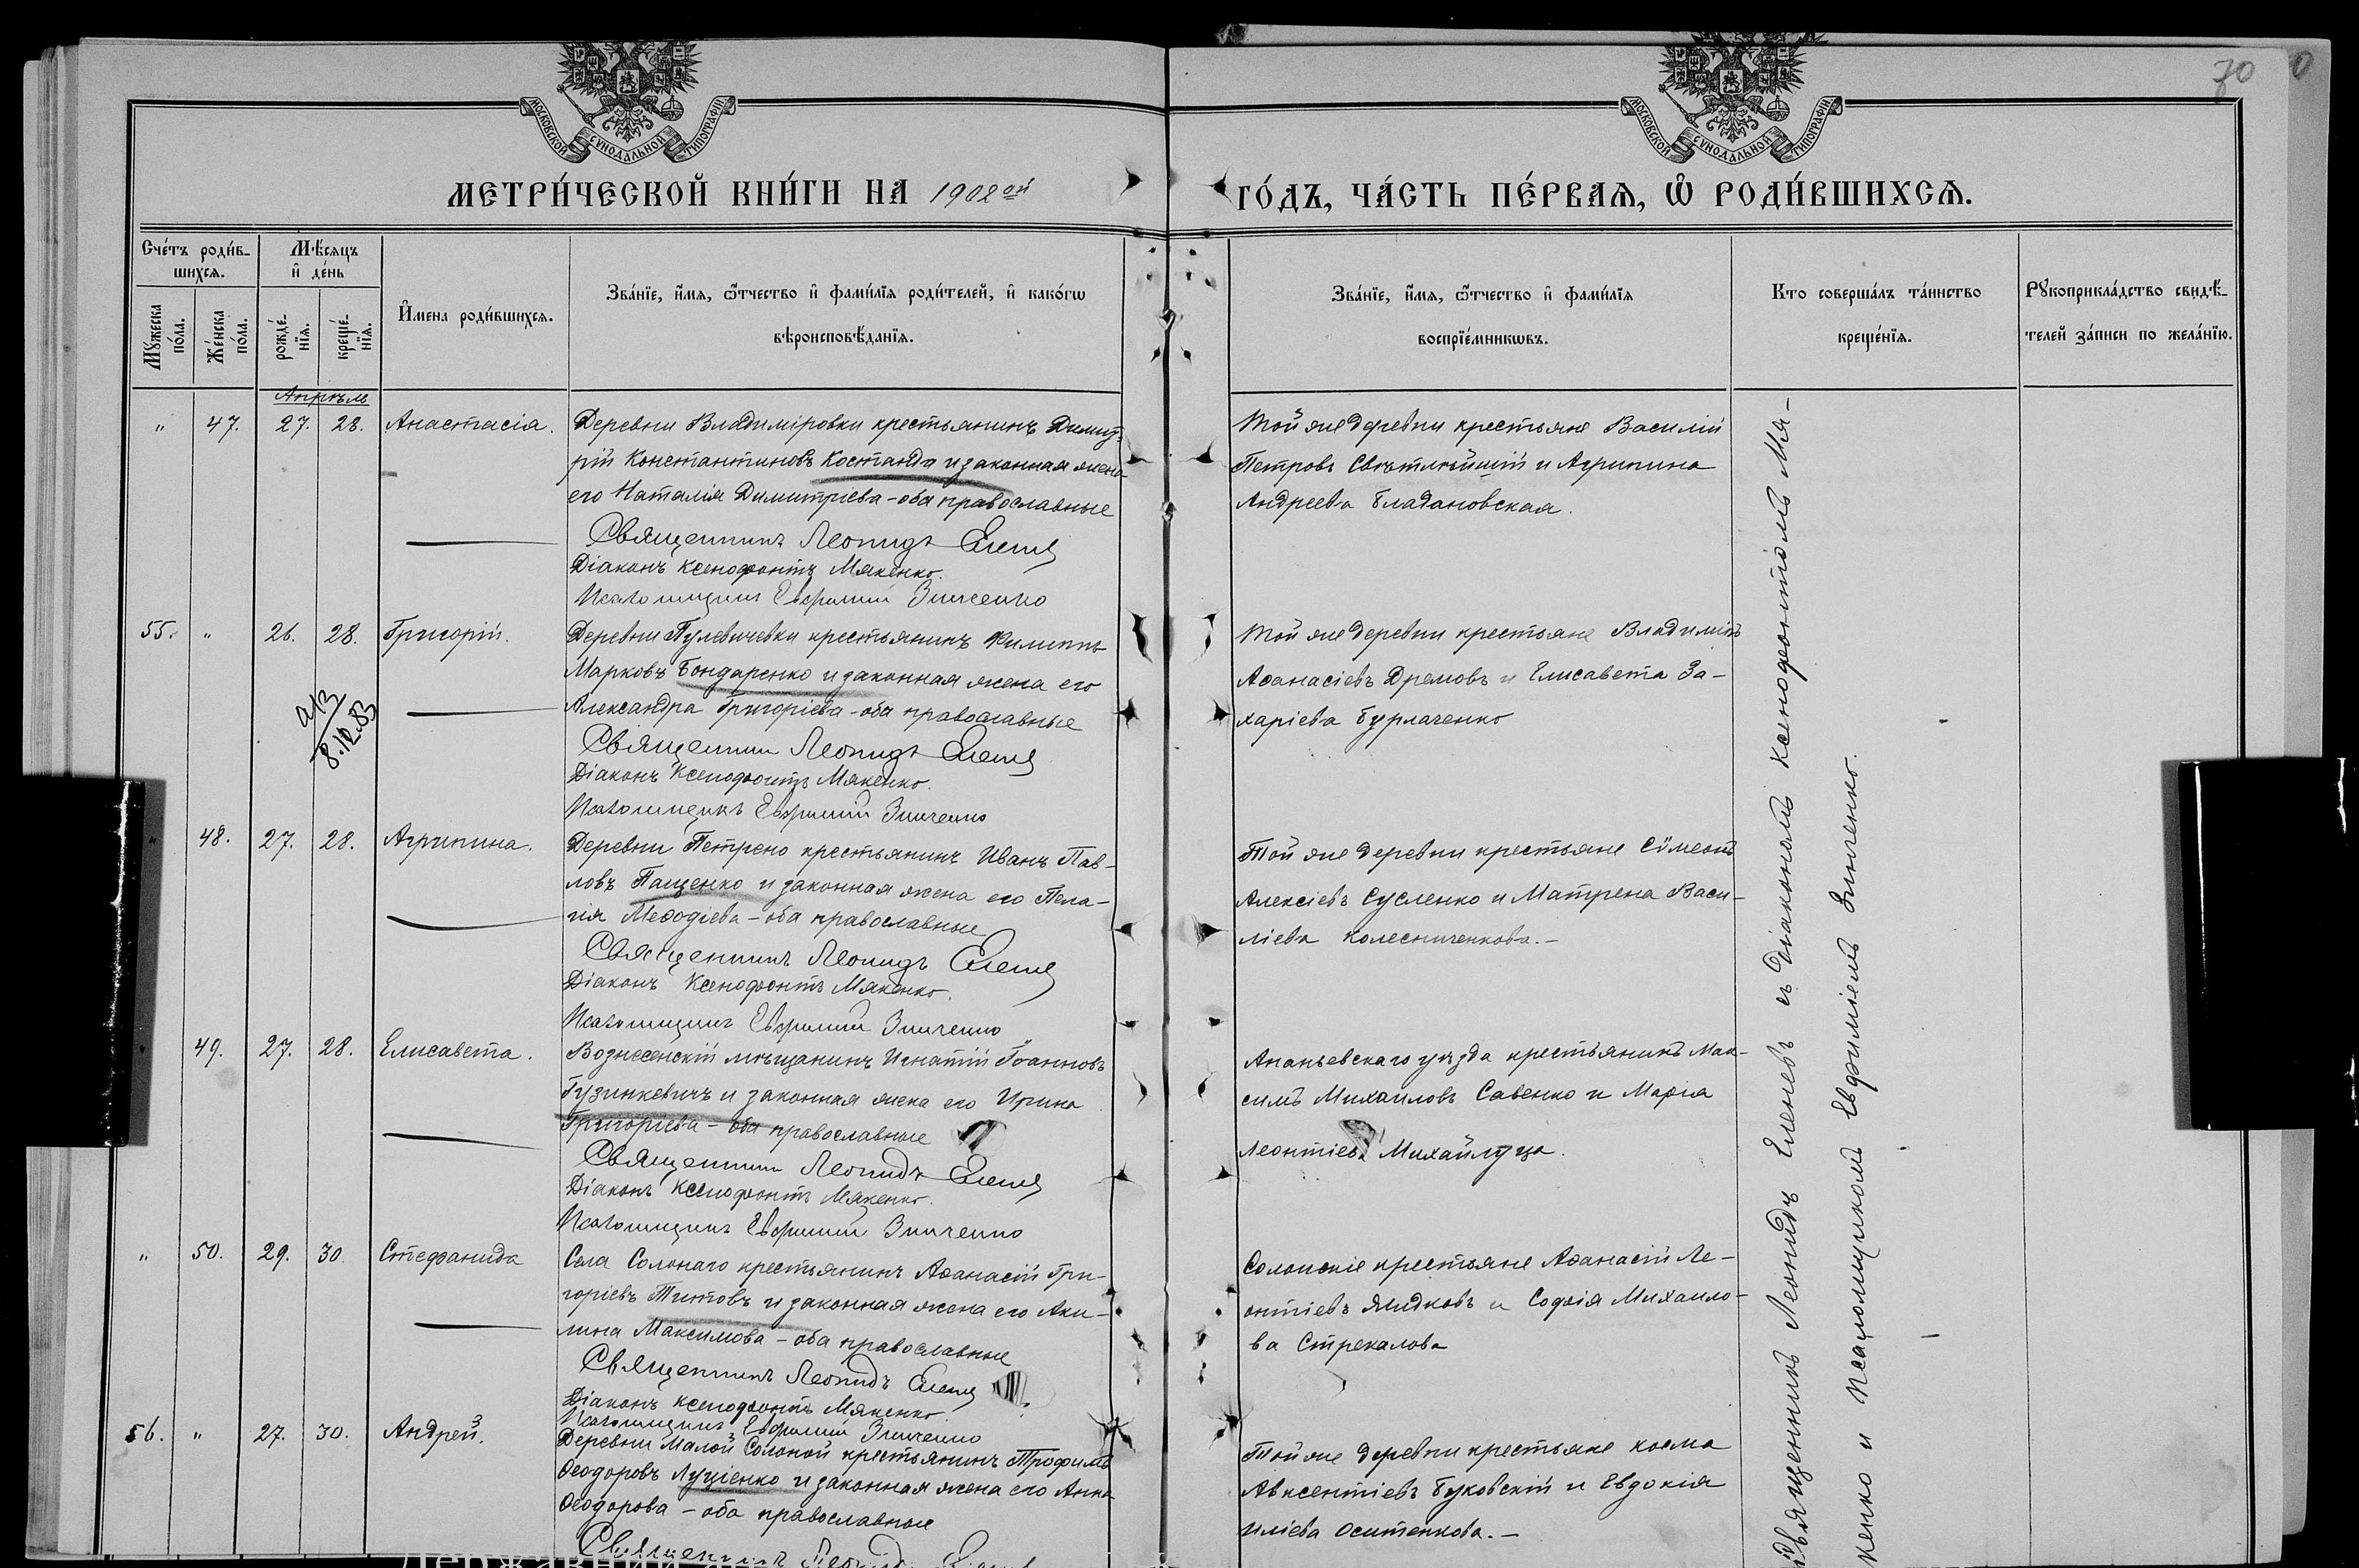 70
МОСКОВСКОЙ СѴНОДАЛЬНОЙ ТИПОГРАФІИ
МОСКОВСКОЙ СѴНОДАЛЬНОЙ ТИПОГРАФІИ
МЕТРИ́ЧЕСКОЙ КНИ́ГИ НА 1902 ой
ГО́ДЪ, ЧА́СТЬ ПЕ́РВАЯ, Ѡ РОДИ́ВШИХСѦ.
Сче́тъ роди́в-
шихсѧ.
Мѣ́сяцъ
и҆ де́нь
Мꙋ́жеска по́ла.
Же́нска по́ла.
рожде́-
нїѧ.
креще́-
нїѧ.
И҆мена роди́вшихсѧ.
Зва́нїе, и҆́мѧ, ѻ҆́тчество и҆ фами́лїѧ роди́телей, и҆ како́гѡ
вѣроисповѣ́данїѧ.
Зва́нїе, и҆́мѧ, ѻ҆́тчество и҆ фами́лїѧ
воспрїе́мникѡвъ.
Кто соверша́лъ та́инство
креще́нїѧ.
Рꙋкоприкла́дство свидѣ́-
телей за́писи по жела́нїю.
Апрѣль
" 47. 27. 28. Анастасія.
Деревни Владиміровки крестьянинъ Димит-
рій Константиновъ Костанда и законная жена
его Наталія Димитріева - оба православные
Священникъ Леонидъ Еленев
Діаконъ Ксенофонтъ Мякенко.
Псаломщикъ Евфимій Зинченко
Той же деревни крестьяне Василій
Петровъ Свѣтлѣйшій и Агрипина
Андреева
55. " 26. 28. Григорій.
а/з
8.12.83
Деревни Пулевичевки крестьянинъ Филиппъ
Марковъ Бондаренко и законная жена его
Александра Григоріева - оба православные
Священникъ Леонидъ Еленев
Діаконъ Ксенофонтъ Мякенко.
Псаломщикъ Евфимій Зинченко
Той же деревни крестьяне Владиміръ
Аѳанасіевъ Дремовъ и Елисавета За-
харіева Бурлаченко
" 48. 27. 28. Агрипина.
Деревни Петрено крестьянинъ Иванъ Пав-
ловъ Пащенко и законная жена его Пела-
гія Меѳодіева - оба православные
Священникъ Леонидъ Еленев
Діаконъ Ксенофонтъ Мякенко.
Псаломщикъ Евфимій Зинченко
Той же деревни крестьяне Сѵмеонъ
Алексіевъ Сусленко и Матрена Васи-
ліева Колесниченкова. -
" 49. 27. 28. Елисавета.
Вознесенскій мѣщанинъ Игнатій Іоанновъ
Гузинкевичъ и законная жена его Ирина
Григоріева - оба православные
Священникъ Леонидъ Еленев
Діаконъ Ксенофонтъ Мякенко.
Псаломщикъ Евфимій Зинченко
Ананьевскаго уѣзда крестьянинъ Мак-
симъ Михаиловъ Савенко и Марія
Леонтіева Михайлуца.
" 50. 29. 30. Стефанида
Села Солонаго крестьянинъ Аѳанасій Гри-
горіевъ Титовъ и законная жена его Аки-
лина Максимова - оба православные
Священникъ Леонидъ Еленев
Діаконъ Ксенофонтъ Мякенко.
Псаломщикъ Евфимій Зинченко
Солонскіе крестьяне Аѳанасій Ле-
онтіевъ и Софія Михаило-
ва Стрекалова
56. " 27. 30. Андрей.
Деревни Малой Солоной крестьянинъ Трофимъ
Ѳеодоровъ Луценко и законная жена его Анна
Ѳеодорова - оба православные
Священникъ Леонидъ
Той же деревни крестьяне Косма
Авксентіевъ Буковскій и Евдокія
Иліева Оситенкова. -
Священникъ Леонидъ Еленевъ съ Діакономъ Ксенофонтомъ Мя-
кенко и Псаломщикомъ Евфиміемъ Зинченко.